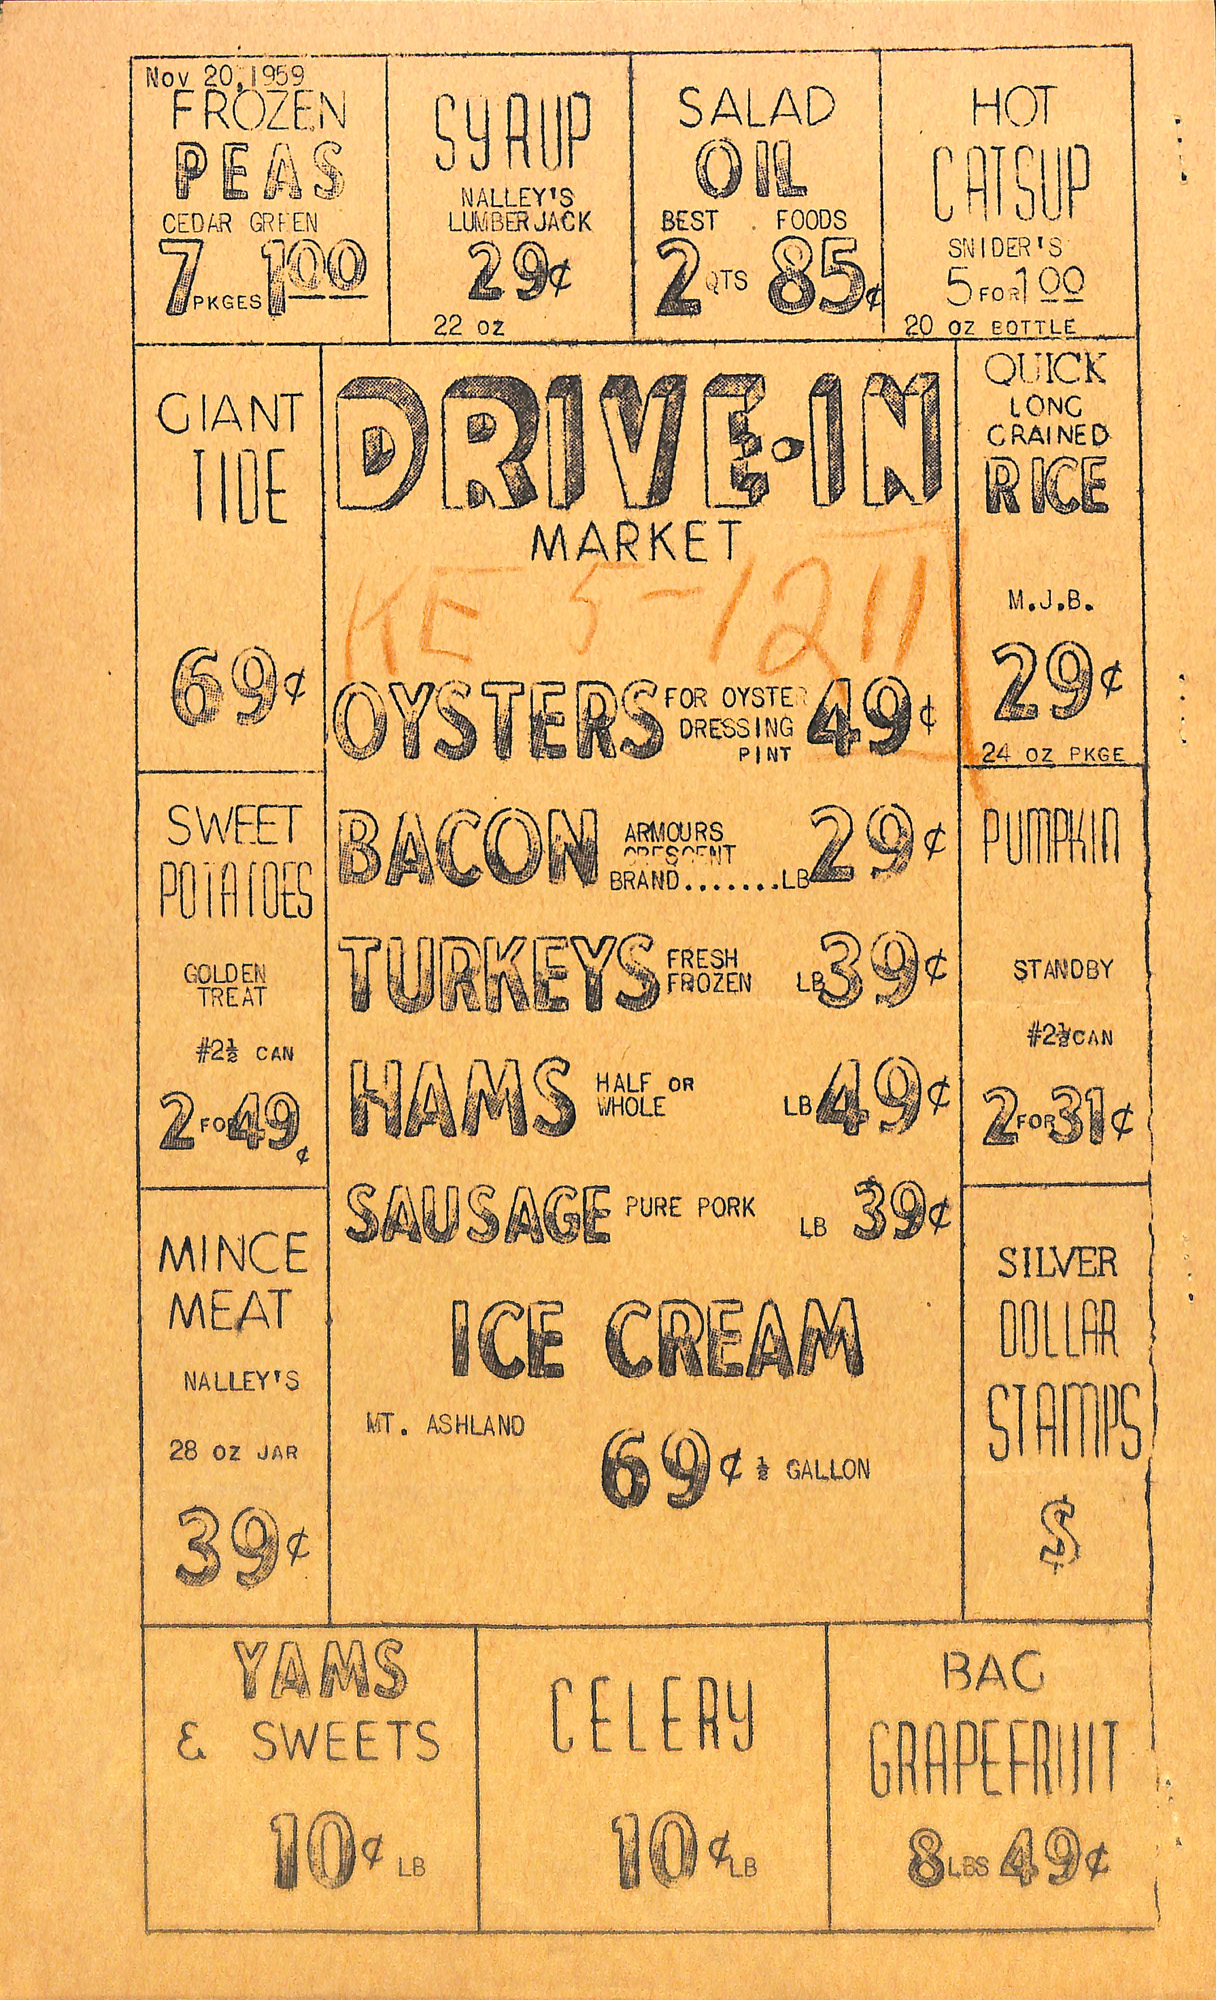 Nov 20, 1959
FROZEN
PEAS
CEDAR GREEN
7 PKGES 1 00
SYRUP
NALLEY'S
LUMBERJACK
29¢
22 OZ
SALAD
OIL
BEST FOODS
2 QTS 85¢
HOT
CATSUP
SNIDER'S
5 FOR 1 00
20 OZ BOTTLE
GIANT
TIDE
69¢
DRIVE-IN
MARKET
KE 5-1211
OYSTERS FOR OYSTER
DRESSING
PINT 49¢
BACON ARMOURS
CRESCENT
BRAND.......LB 29¢
TURKEYS FRESH
FROZEN LB 39¢
HAMS HALF OR
WHOLE LB 49¢
SAUSAGE PURE PORK LB 39¢
ICE CREAM
MT. ASHLAND
69¢ ½ GALLON
QUICK
LONG
GRAINED
RICE
M.J.B.
29¢
24 OZ PKGE
SWEET
POTATOES
GOLDEN
TREAT
#2½ CAN
2 FOR 49¢
PUMPKIN
STANDBY
#2½ CAN
2 FOR 31¢
MINCE
MEAT
NALLEY'S
28 OZ JAR
39¢
SILVER
DOLLAR
STAMPS
$
YAMS
& SWEETS
10¢ LB
CELERY
10¢ LB
BAG
GRAPEFRUIT
8 LBS 49¢